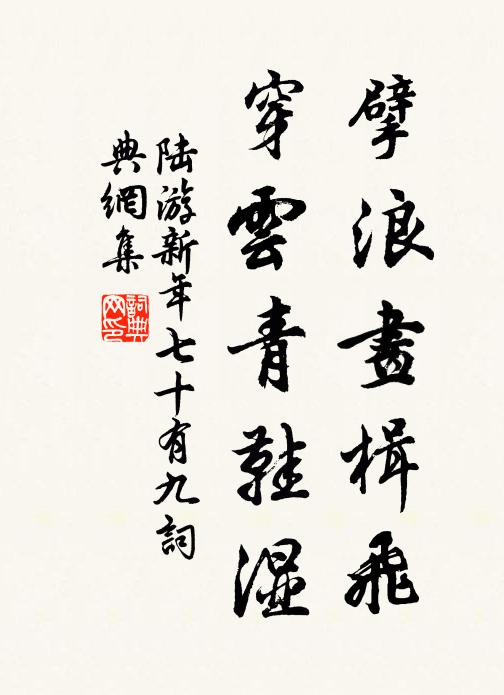 擘浪畫楫飛
穿雲青鞋濕
陸游新年七十有九詞
典網集
詞典網印